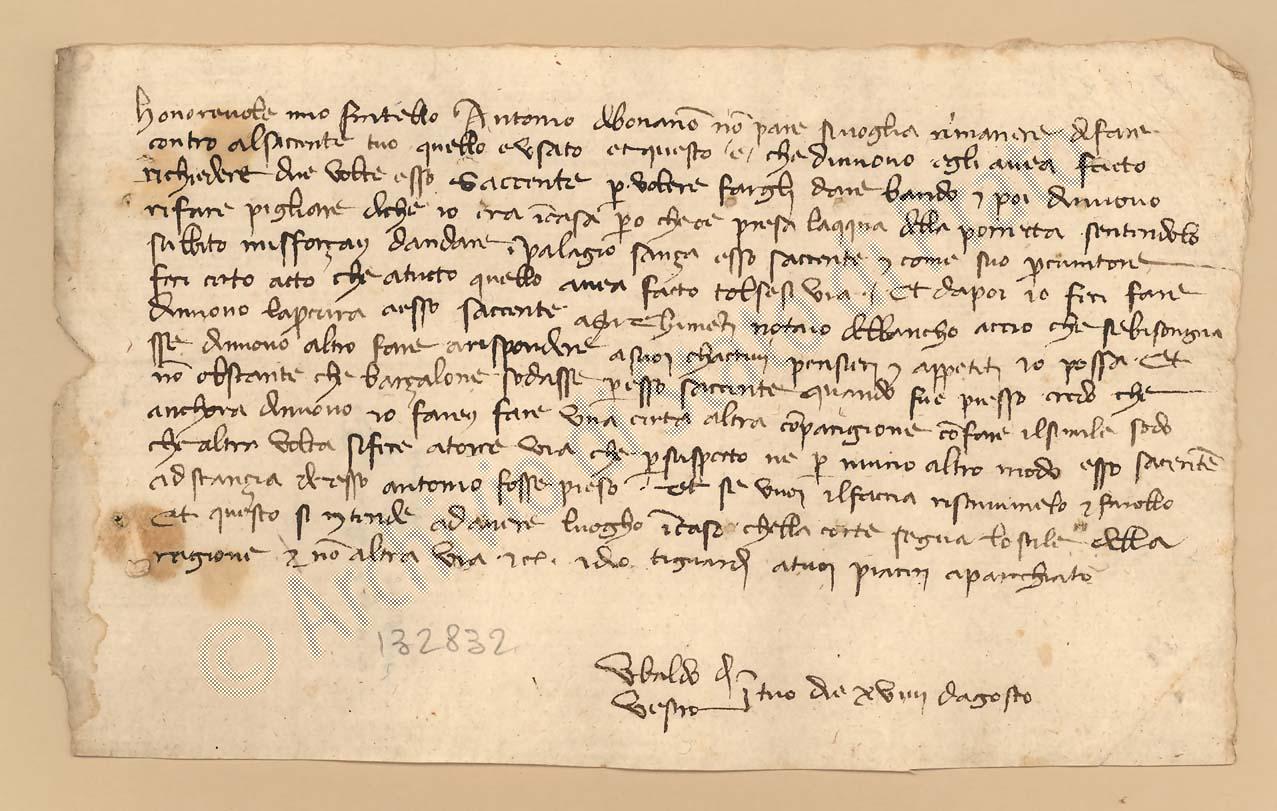 Honorevole mio fratello Antonio di bonano no pare si voglia rimanere di fare
contro al saccente tuo quello e usato et questo e che dinuovo egli avea fatto
richiedere due volte esso Saccente p volere fargli dare bando et poi dinuovo
rifare pigliare di che io era i casa po che ce presa laqqua della porretta sentendolo
subbito mi sforzay dandare i palagio sanza esso saccente et come suo pcuratore
feci certo acto che atucto quello avea facto tolsesi via. Et dapoi io feci fare
dinuovo la pcura aesso saccente notaio del bancho accio che se bisongnia
sse dinuovo altro fare arispondere asuoi chactivi pensieri et appetiti io possa Et
no obstante che barzalone sodasse p esso saccente quando fue presso credo che
anchora dinuovo io farey fare una certa altra comparigione co fare il simile sodo
che altra volta si fece atorre via che p suspecto ne p niuno altro modo esso saccente
ad stanzia desso antonio fosse preso. Et se vuoi il faccia riscrivimelo et farollo
Et questo si intende ad avere luogho i caso chella corte segua lo stile della
ragione et no altra via etc. idio ti guardi a tuoi piaceri aparechiato
Ubaldo di
Vestro tuo die xviiii dagosto
132832
© Archivio di Stato di Prato